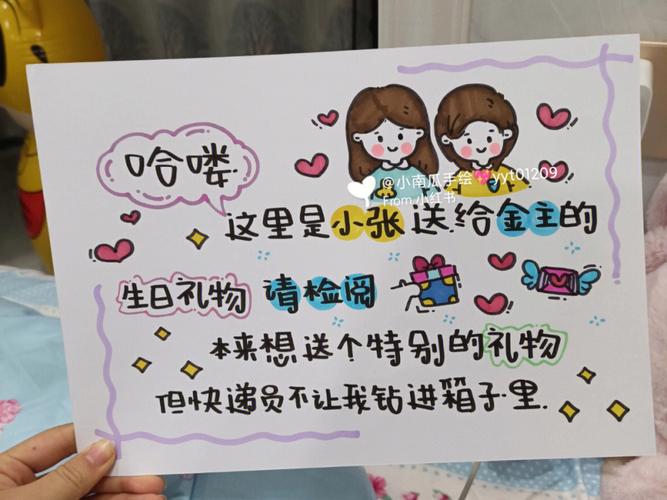 哈喽
@小南瓜手绘💗yyt01209
From 小红书
这里是小张送给金主的
生日礼物 请检阅
本来想送个特别的礼物
但快递员不让我钻进箱子里.